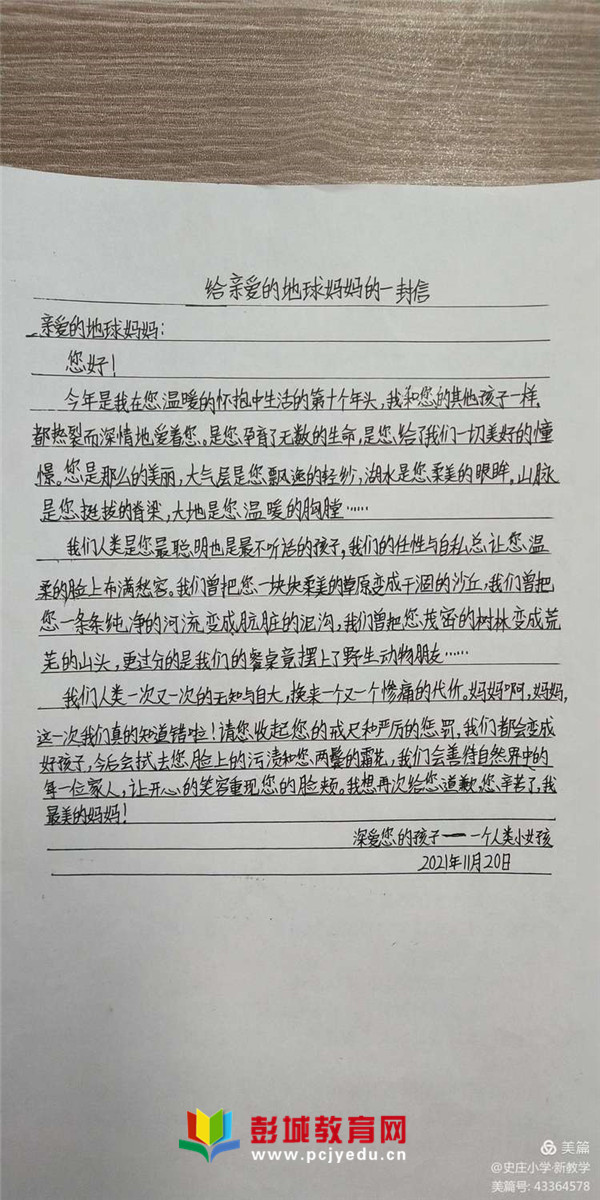 给亲爱的地球妈妈的一封信
亲爱的地球妈妈：
您好！
今年是我在您温暖的怀抱中生活的第十个年头，我和您的其他孩子一样，
都热裂而深情地爱着您。是您孕育了无数的生命，是您给了我们一切美好的憧
憬。您是那么的美丽，大气层是您飘逸的轻纱，湖水是您柔美的眼眸。山脉
是您挺拔的脊梁，大地是您温暖的胸膛……
我们人类是您最聪明也是最不听话的孩子，我们的任性与自私总让您温
柔的脸上布满愁容。我们曾把您一块块柔美的草原变成干涸的沙丘，我们曾把
您一条条纯净的河流变成肮脏的泥沟，我们曾把您茂密的树林变成荒
芜的山头，更过分的是我们的餐桌竟摆上了野生动物朋友……
我们人类一次又一次的无知与自大，换来一个又一个惨痛的代价。妈妈啊，妈妈，
这一次我们真的知道错啦！请您收起您的戒尺和严厉的惩罚，我们都会变成
好孩子，今后会拭去您脸上的污渍和您两鬓的霜花，我们会善待自然界中的
每一位家人，让开心的笑容重现您的脸颊。我想再次给您道歉，您辛苦了，我
最美的妈妈！
深爱您的孩子——一个人类小女孩
2021年11月20日
彭城教育网
www.pcjyedu.cn
美篇
@史庄小学·新教学
美篇号：43364578